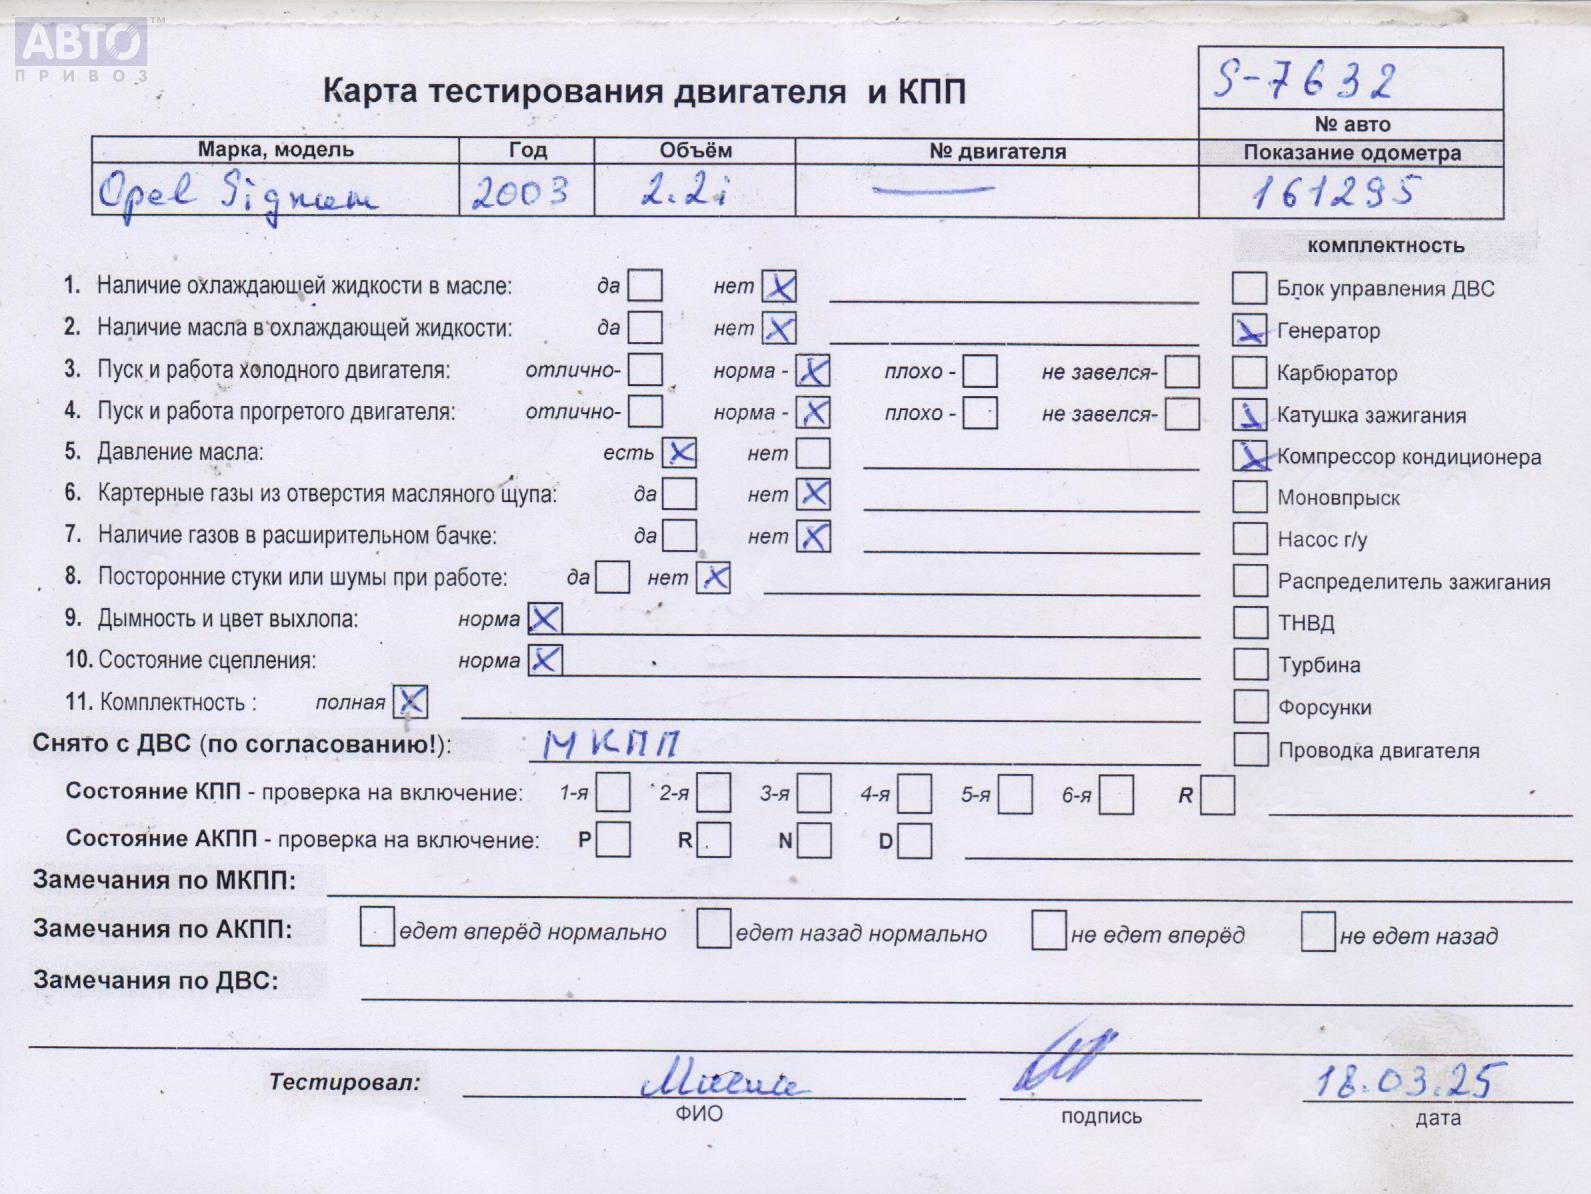 АВТО™
ПРИВОЗ
Карта тестирования двигателя и КПП
S-7632
№ авто
Марка, модель Год Объём № двигателя Показание одометра
Opel Signum 2003 2.2i — 161295
комплектность
1. Наличие охлаждающей жидкости в масле: да нет X Блок управления ДВС
2. Наличие масла в охлаждающей жидкости: да нет X X Генератор
3. Пуск и работа холодного двигателя: отлично- норма - X плохо - не завелся- Карбюратор
4. Пуск и работа прогретого двигателя: отлично- норма - X плохо - не завелся- X Катушка зажигания
5. Давление масла: есть X нет X Компрессор кондиционера
6. Картерные газы из отверстия масляного щупа: да нет X Моновпрыск
7. Наличие газов в расширительном бачке: да нет X Насос г/у
8. Посторонние стуки или шумы при работе: да нет X Распределитель зажигания
9. Дымность и цвет выхлопа: норма X ТНВД
10. Состояние сцепления: норма X Турбина
11. Комплектность : полная X Форсунки
Снято с ДВС (по согласованию!): МКПП Проводка двигателя
Состояние КПП - проверка на включение: 1-я 2-я 3-я 4-я 5-я 6-я R
Состояние АКПП - проверка на включение: P R N D
Замечания по МКПП:
Замечания по АКПП: едет вперёд нормально едет назад нормально не едет вперёд не едет назад
Замечания по ДВС:
Тестировал: 18.03.25
ФИО подпись дата